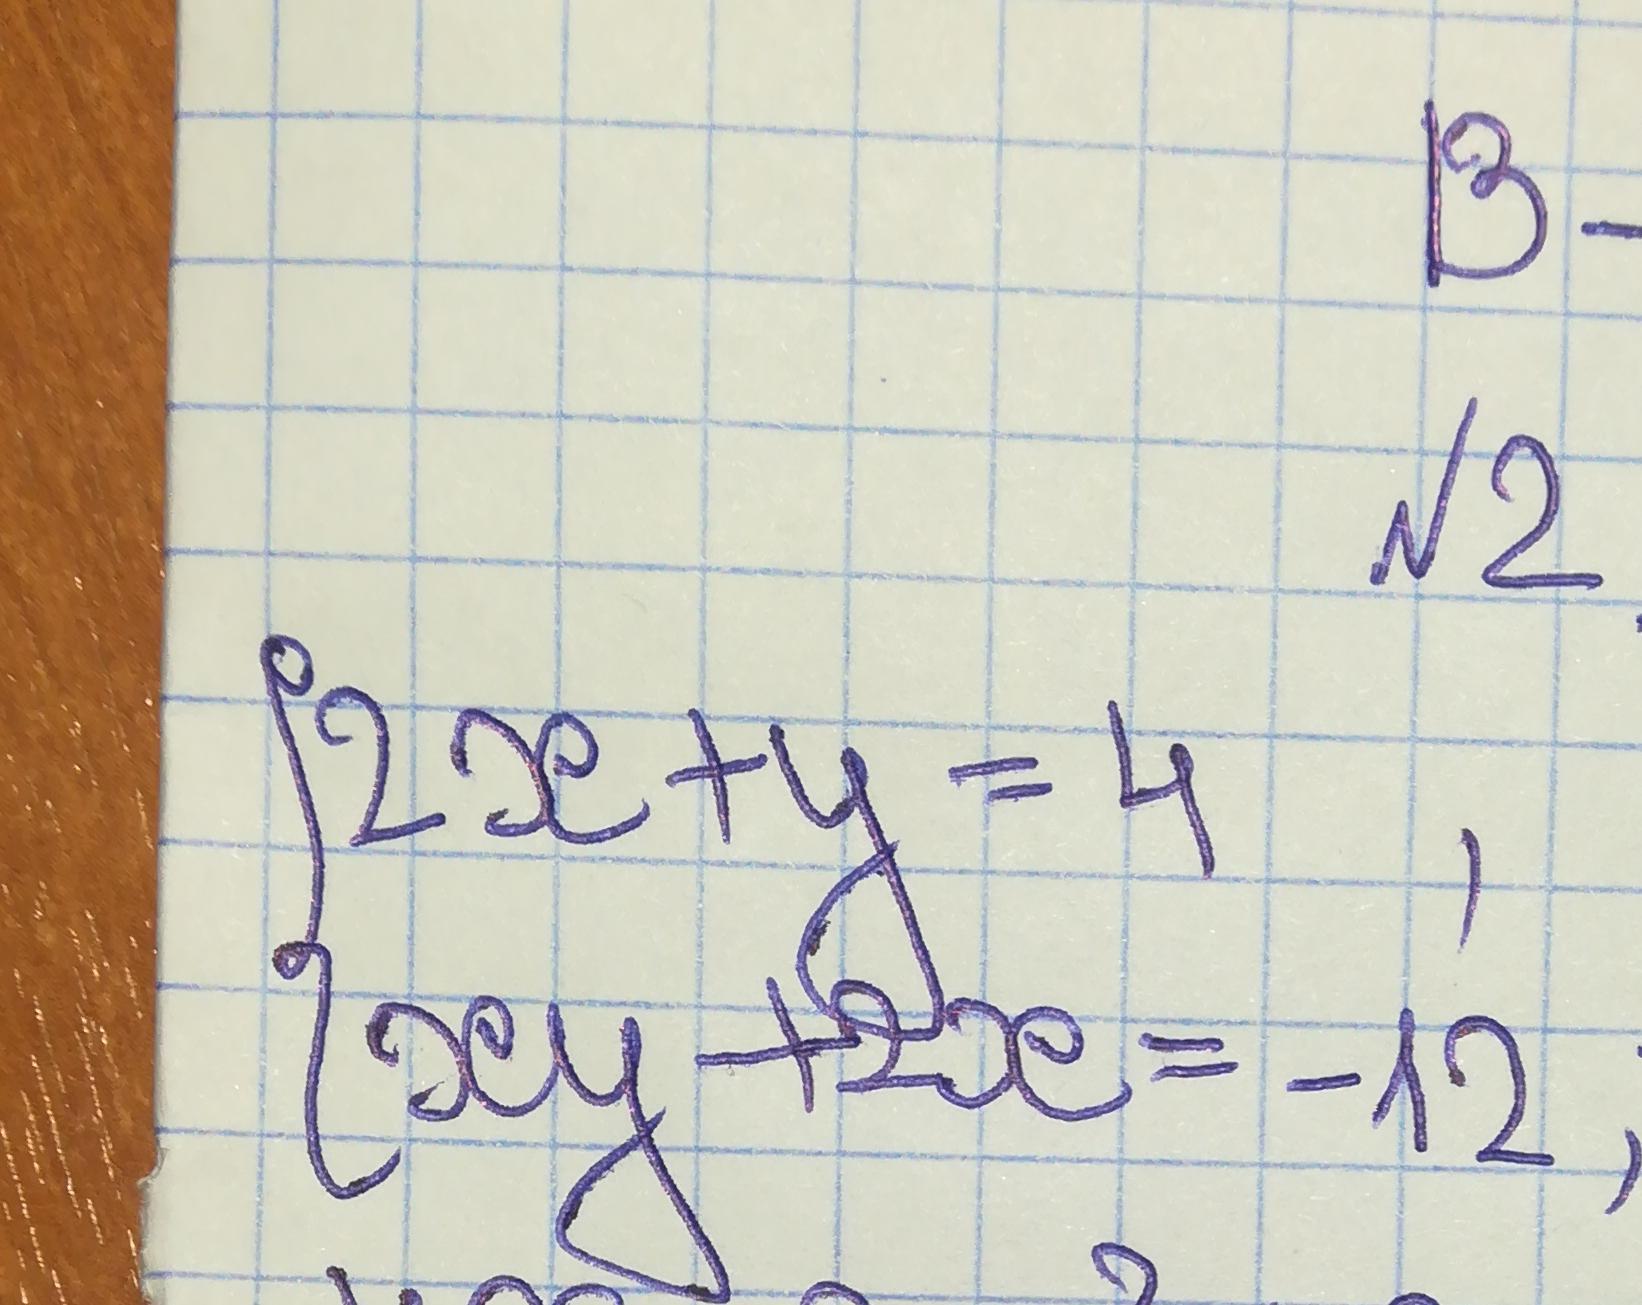 В-
√2
{2x+y=4,
{xy+2x=-12,